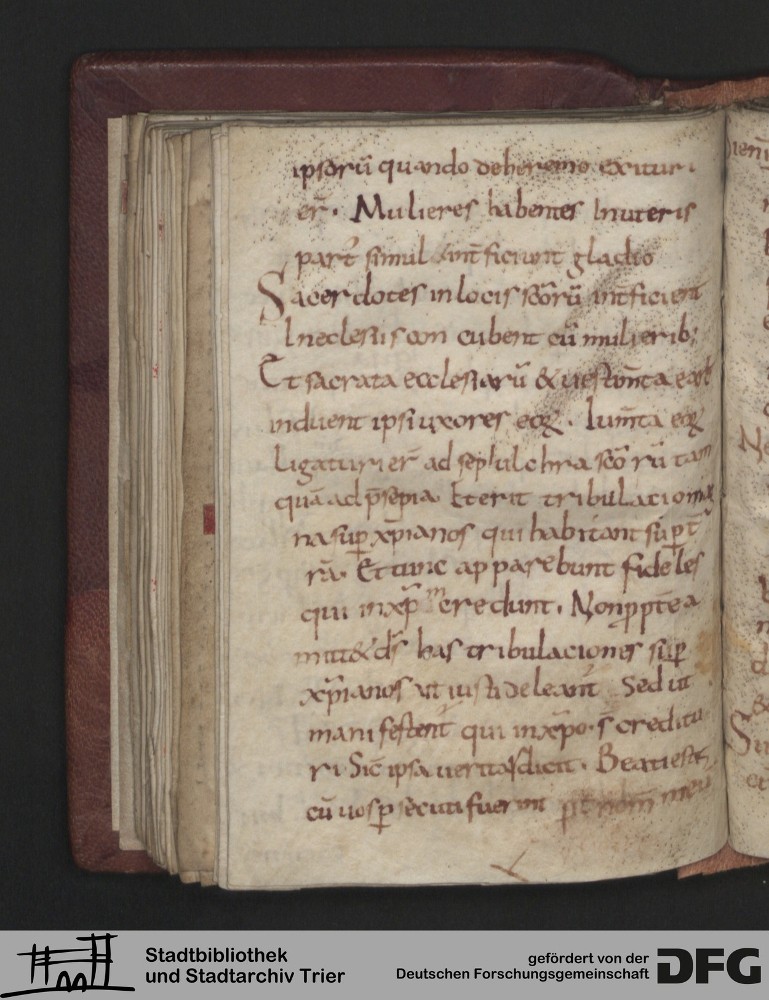 ipsorū quando deberemo exituri
er̄. Mulieres habentes Inuteris
part̄ simul int̄ficiunt gladio
Sacerdotes inlocis sc̄orū int̄ficient
Ineclesiis con cubent cū mulierib;
Et sacrata ecclesiarū & uestim̄ta
induent ipsi uxores eoꝝ. Ium̄ta eoꝝ
ligaturi er̄ ad sepulchra sc̄orū tam
quā ad p̄sepia. Eterit tribulacio
na sup̄ xp̄ianos qui habitant sup̄ t̄
rā. Et tunc apparebunt fideles
qui inxp̄m credunt. Non ꝓpt̄ea
mitt& d̄s has tribulaciones sup̄
xp̄ianos ut iusti deleant Sed ut
manifestent̄ qui inxp̄o s̄ credituri
ri Sic̄ ipsa ueritas dicit. Beati estis
cū uos ꝑsecuti fuerint ꝓt̄ nom̄ meū
Stadtbibliothek
und Stadtarchiv Trier
gefördert von der
Deutschen Forschungsgemeinschaft
DFG